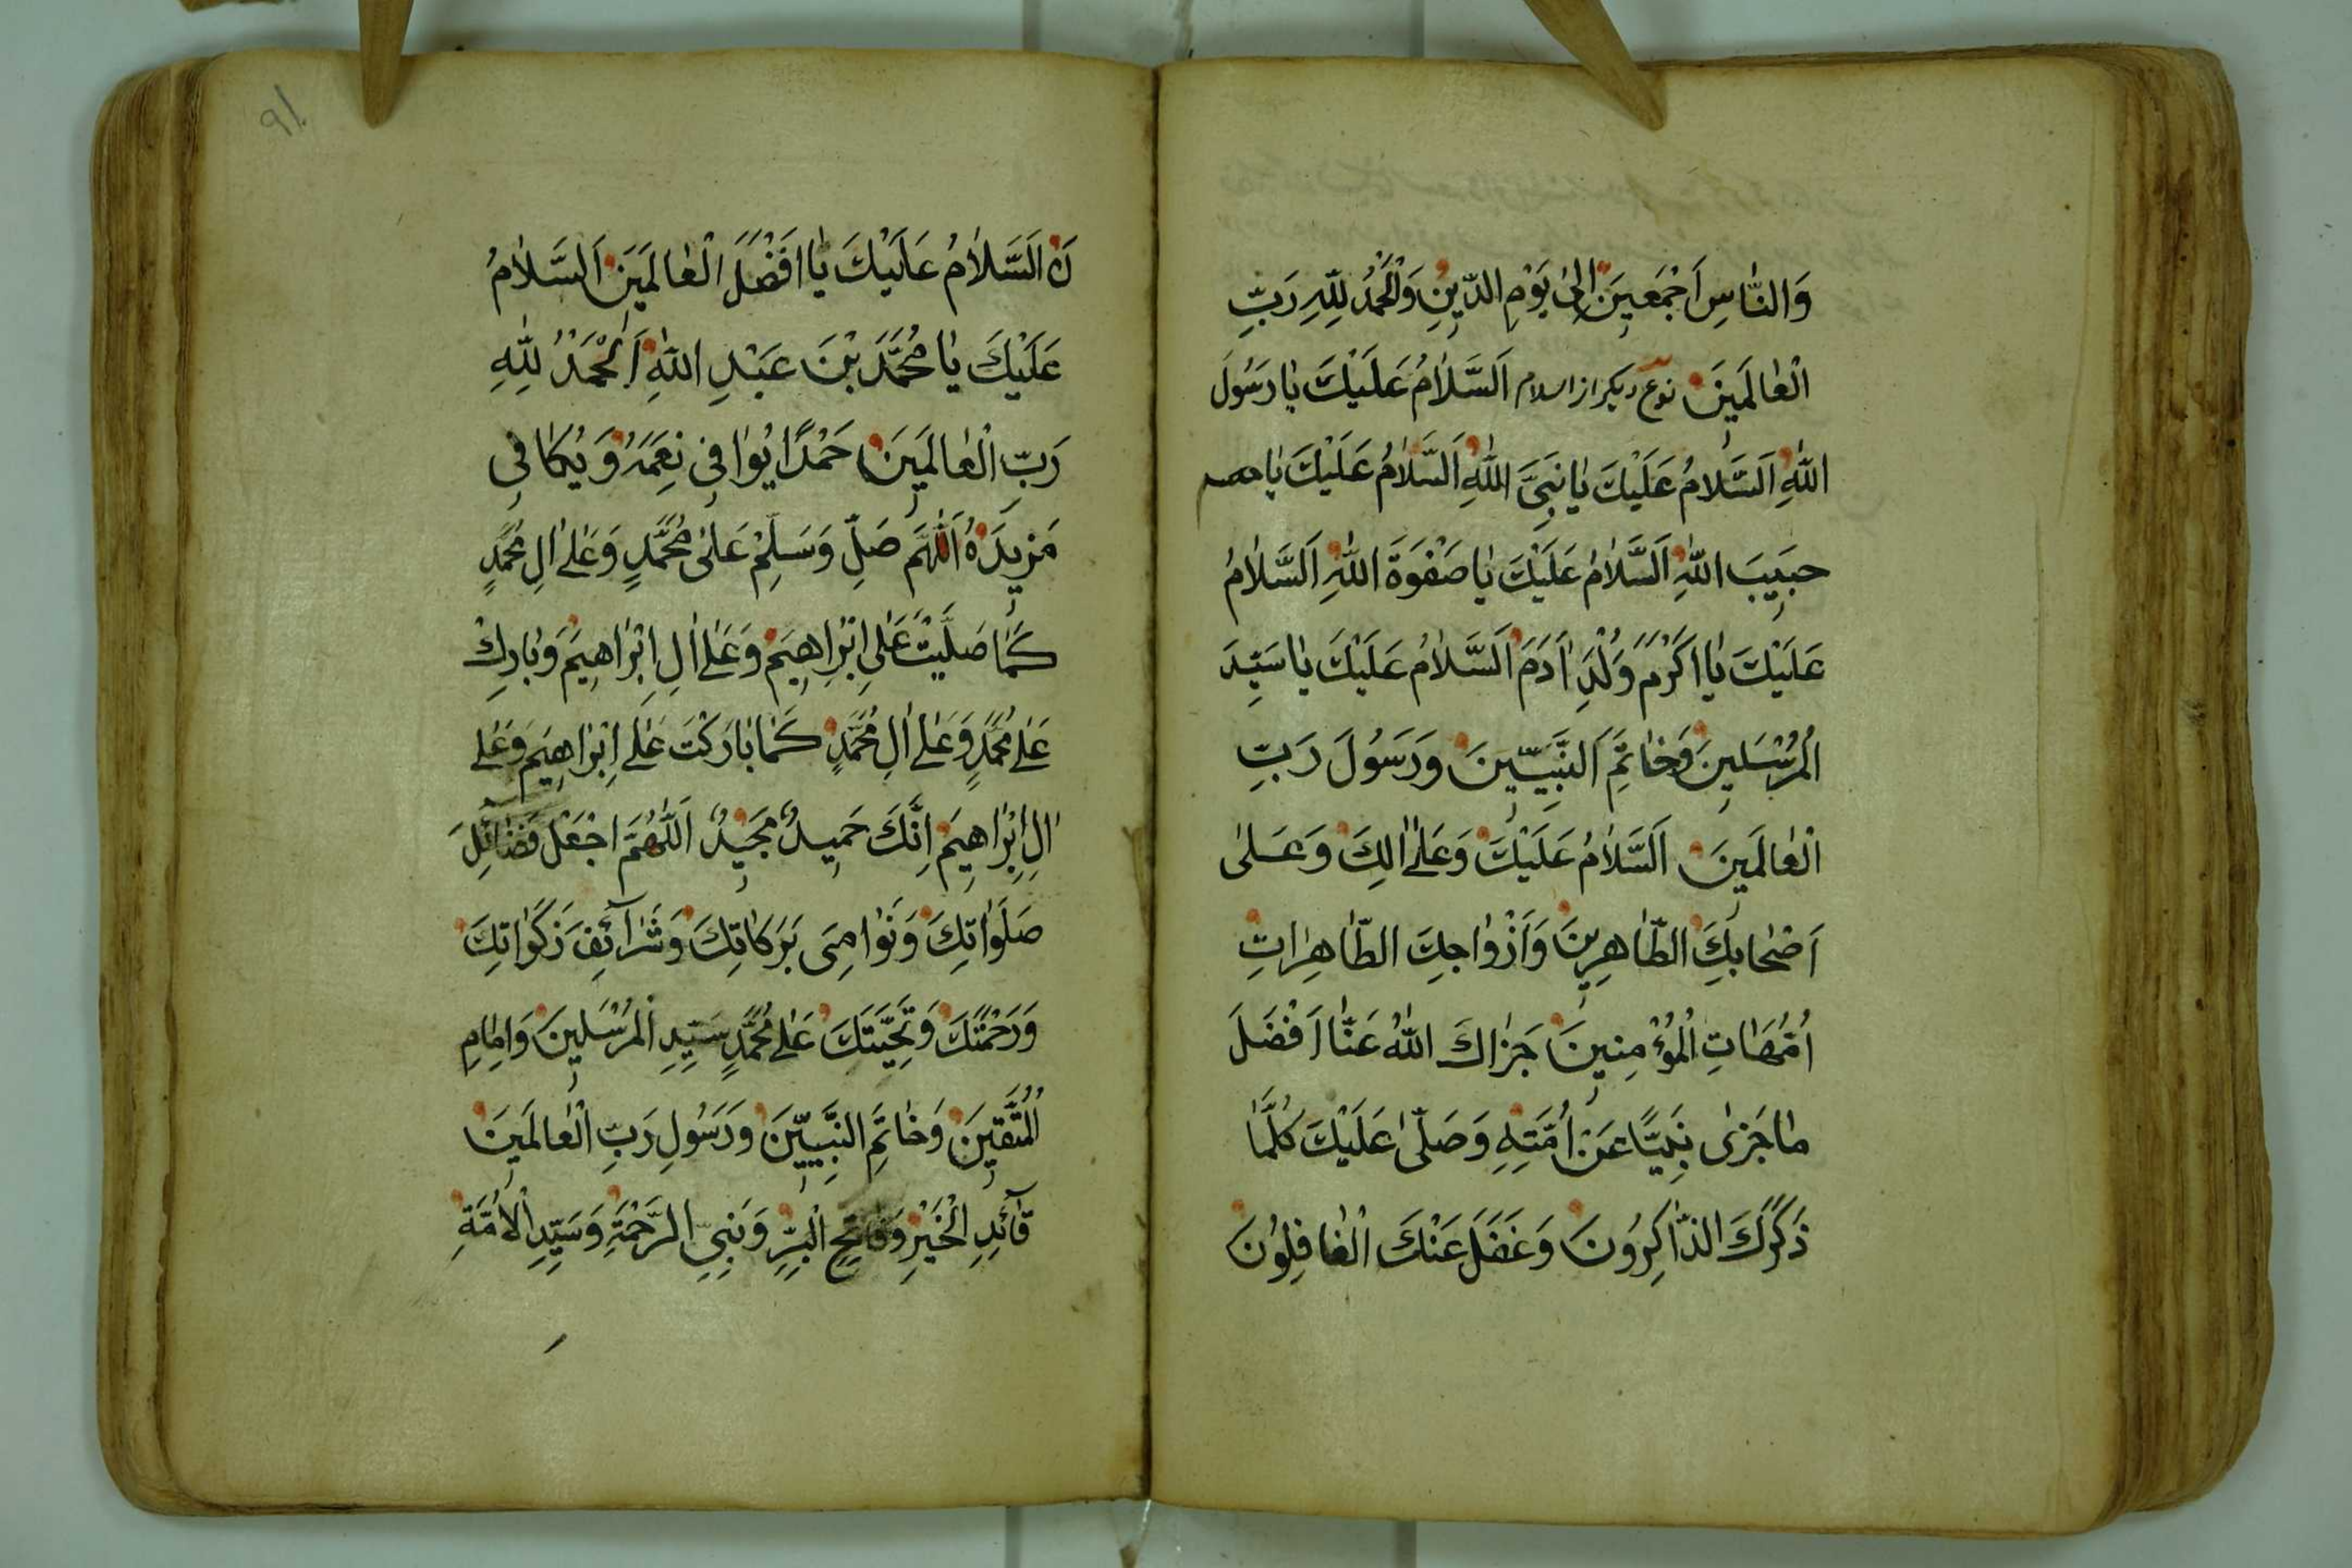 وَالنَّاسِ اَجْمَعِينَ اِلىٰ يَوْمِ الدِّينِ وَالْحَمْدُ لِلّٰهِ رَبِّ
الْعٰالَمِينَ نوع ديكر از اسلام اَلسَّلَامُ عَلَيْكَ يٰا رَسُولَ
اللّٰهِ اَلسَّلَامُ عَلَيْكَ يٰا نَبِيَّ اللّٰهِ اَلسَّلَامُ عَلَيْكَ يٰا
حبَيِبَ اللّٰهِ اَلسَّلَامُ عَلَيْكَ يٰا صَفْوَةَ اللّٰهِ اَلسَّلَامُ
عَلَيْكَ يٰا اَكْرَمَ وُلْدِ اٰدَمَ اَلسَّلَامُ عَلَيْكَ يٰا سَيِّدَ
الْمُرْسَلِينَ وَخٰاتَمَ النَّبِيّينَ وَرَسُولَ رَبِّ
الْعٰالَمِينَ اَلسَّلَامُ عَلَيْكَ وَعَلىٰ اٰلِكَ وَعَلىٰ
اَصْحٰابِكَ الطّٰاهِرِينَ وَاَزْوٰاجِكَ الطّٰاهِرٰاتِ
اُمَّهٰاتِ الْمُؤْمِنِينَ جَزٰاكَ اللّٰهُ عَنّٰا اَفْضَلَ
مٰا جَزٰى نَبِيًّا عَنْ اُمَّتِهِ وَصَلّىٰ عَلَيْكَ كُلَّمٰا
ذَكَرَكَ الذّٰاكِرُونَ وَغَفَلَ عَنْكَ الْغٰافِلُونَ
٩١
نَ اَلسَّلَامُ عَلَيْكَ يٰا اَفْضَلَ الْعٰالَمِينَ اَلسَّلَامُ
عَلَيْكَ يٰا مُحَمَّدَ بْنَ عَبْدِ اللّٰهِ اَلْحَمْدُ لِلّٰهِ
رَبِّ الْعٰالَمِينَ حَمْدًا يُوٰافِي نِعَمَهُ وَيُكٰافِي
مَزِيدَهُ اَللّٰهُمَّ صَلِّ وَسَلِّمْ عَلىٰ مُحَمَّدٍ وَعَلىٰ اٰلِ مُحَمَّدٍ
كَمٰا صَلَّيْتَ عَلىٰ اِبْرٰاهِيمَ وَعَلىٰ اٰلِ اِبْرٰاهِيمَ وَبٰارِكْ
عَلىٰ مُحَمَّدٍ وَعَلىٰ اٰلِ مُحَمَّدٍ كَمٰا بٰارَكْتَ عَلىٰ اِبْرٰاهِيمَ وَعَلىٰ
اٰلِ اِبْرٰاهِيمَ اِنَّكَ حَمِيدٌ مَجِيدٌ اَللّٰهُمَّ اجْعَلْ فَضٰائِلَ
صَلَوٰاتِكَ وَنَوٰامِىَ بَرَكٰاتِكَ وَشَرٰآئِفَ زَكَوٰاتِكَ
وَرَحْمَتَكَ وَتَحِيَّتَكَ عَلىٰ مُحَمَّدٍ سَيِّدِ الْمُرْسَلِينَ وَاِمٰامِ
الْمُتَّقِينَ وَخٰاتَمِ النَّبِيّينَ وَرَسُولِ رَبِّ الْعٰالَمِينَ
قٰآئِدِ الْخَيْرِ وَفٰاتِحِ الْبِرِّ وَنَبِيِّ الرَّحْمَةِ وَسَيِّدِ الْاُمَّةِ